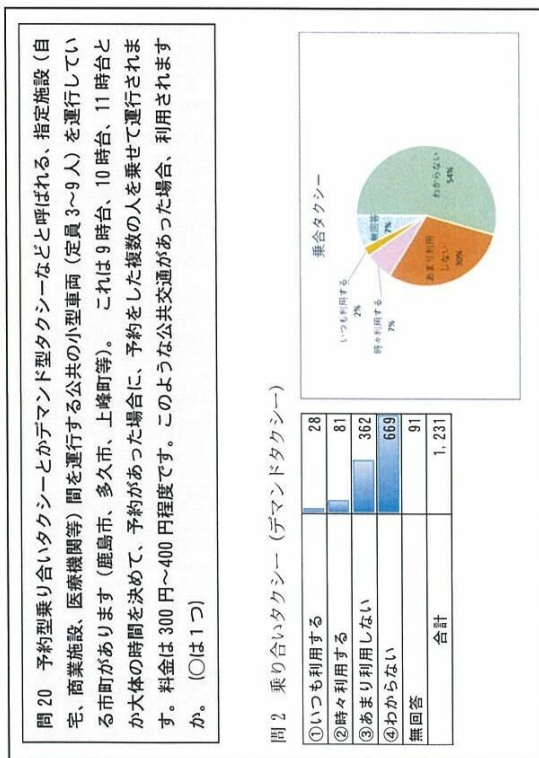 問 20　予約型乗り合いタクシーとかデマンド型タクシーなどと呼ばれる、指定施設（自
宅、商業施設、医療機関等）間を運行する公共の小型車両（定員 3～9 人）を運行してい
る市町があります（鹿島市、多久市、上峰町等）。　これは 9 時台、10 時台、11 時台と
か大体の時間を決めて、予約があった場合に、予約をした複数の人を乗せて運行されま
す。料金は 300 円～400 円程度です。このような公共交通があった場合、利用されます
か。（○は１つ）
問 2　乗り合いタクシー（デマンドタクシー）
①いつも利用する 28
②時々利用する 81
③あまり利用しない 362
④わからない 669
無回答 91
合計 1,231
乗合タクシー
いつも利用する
2%
時々利用する
7%
無回答
7%
あまり利用
しない
30%
わからない
54%